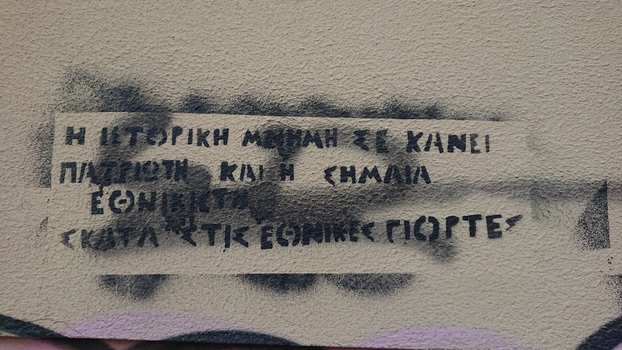 Η ΙΣΤΟΡΙΚΗ ΜΝΗΜΗ ΣΕ ΚΑΝΕΙ
ΠΑΤΡΙΩΤΗ ΚΑΙ Η ΣΗΜΑΙΑ
ΕΘΝΙΚΙΣΤΗ
ΣΚΑΤΑ ΣΤΙΣ ΕΘΝΙΚΕΣ ΓΙΟΡΤΕΣ